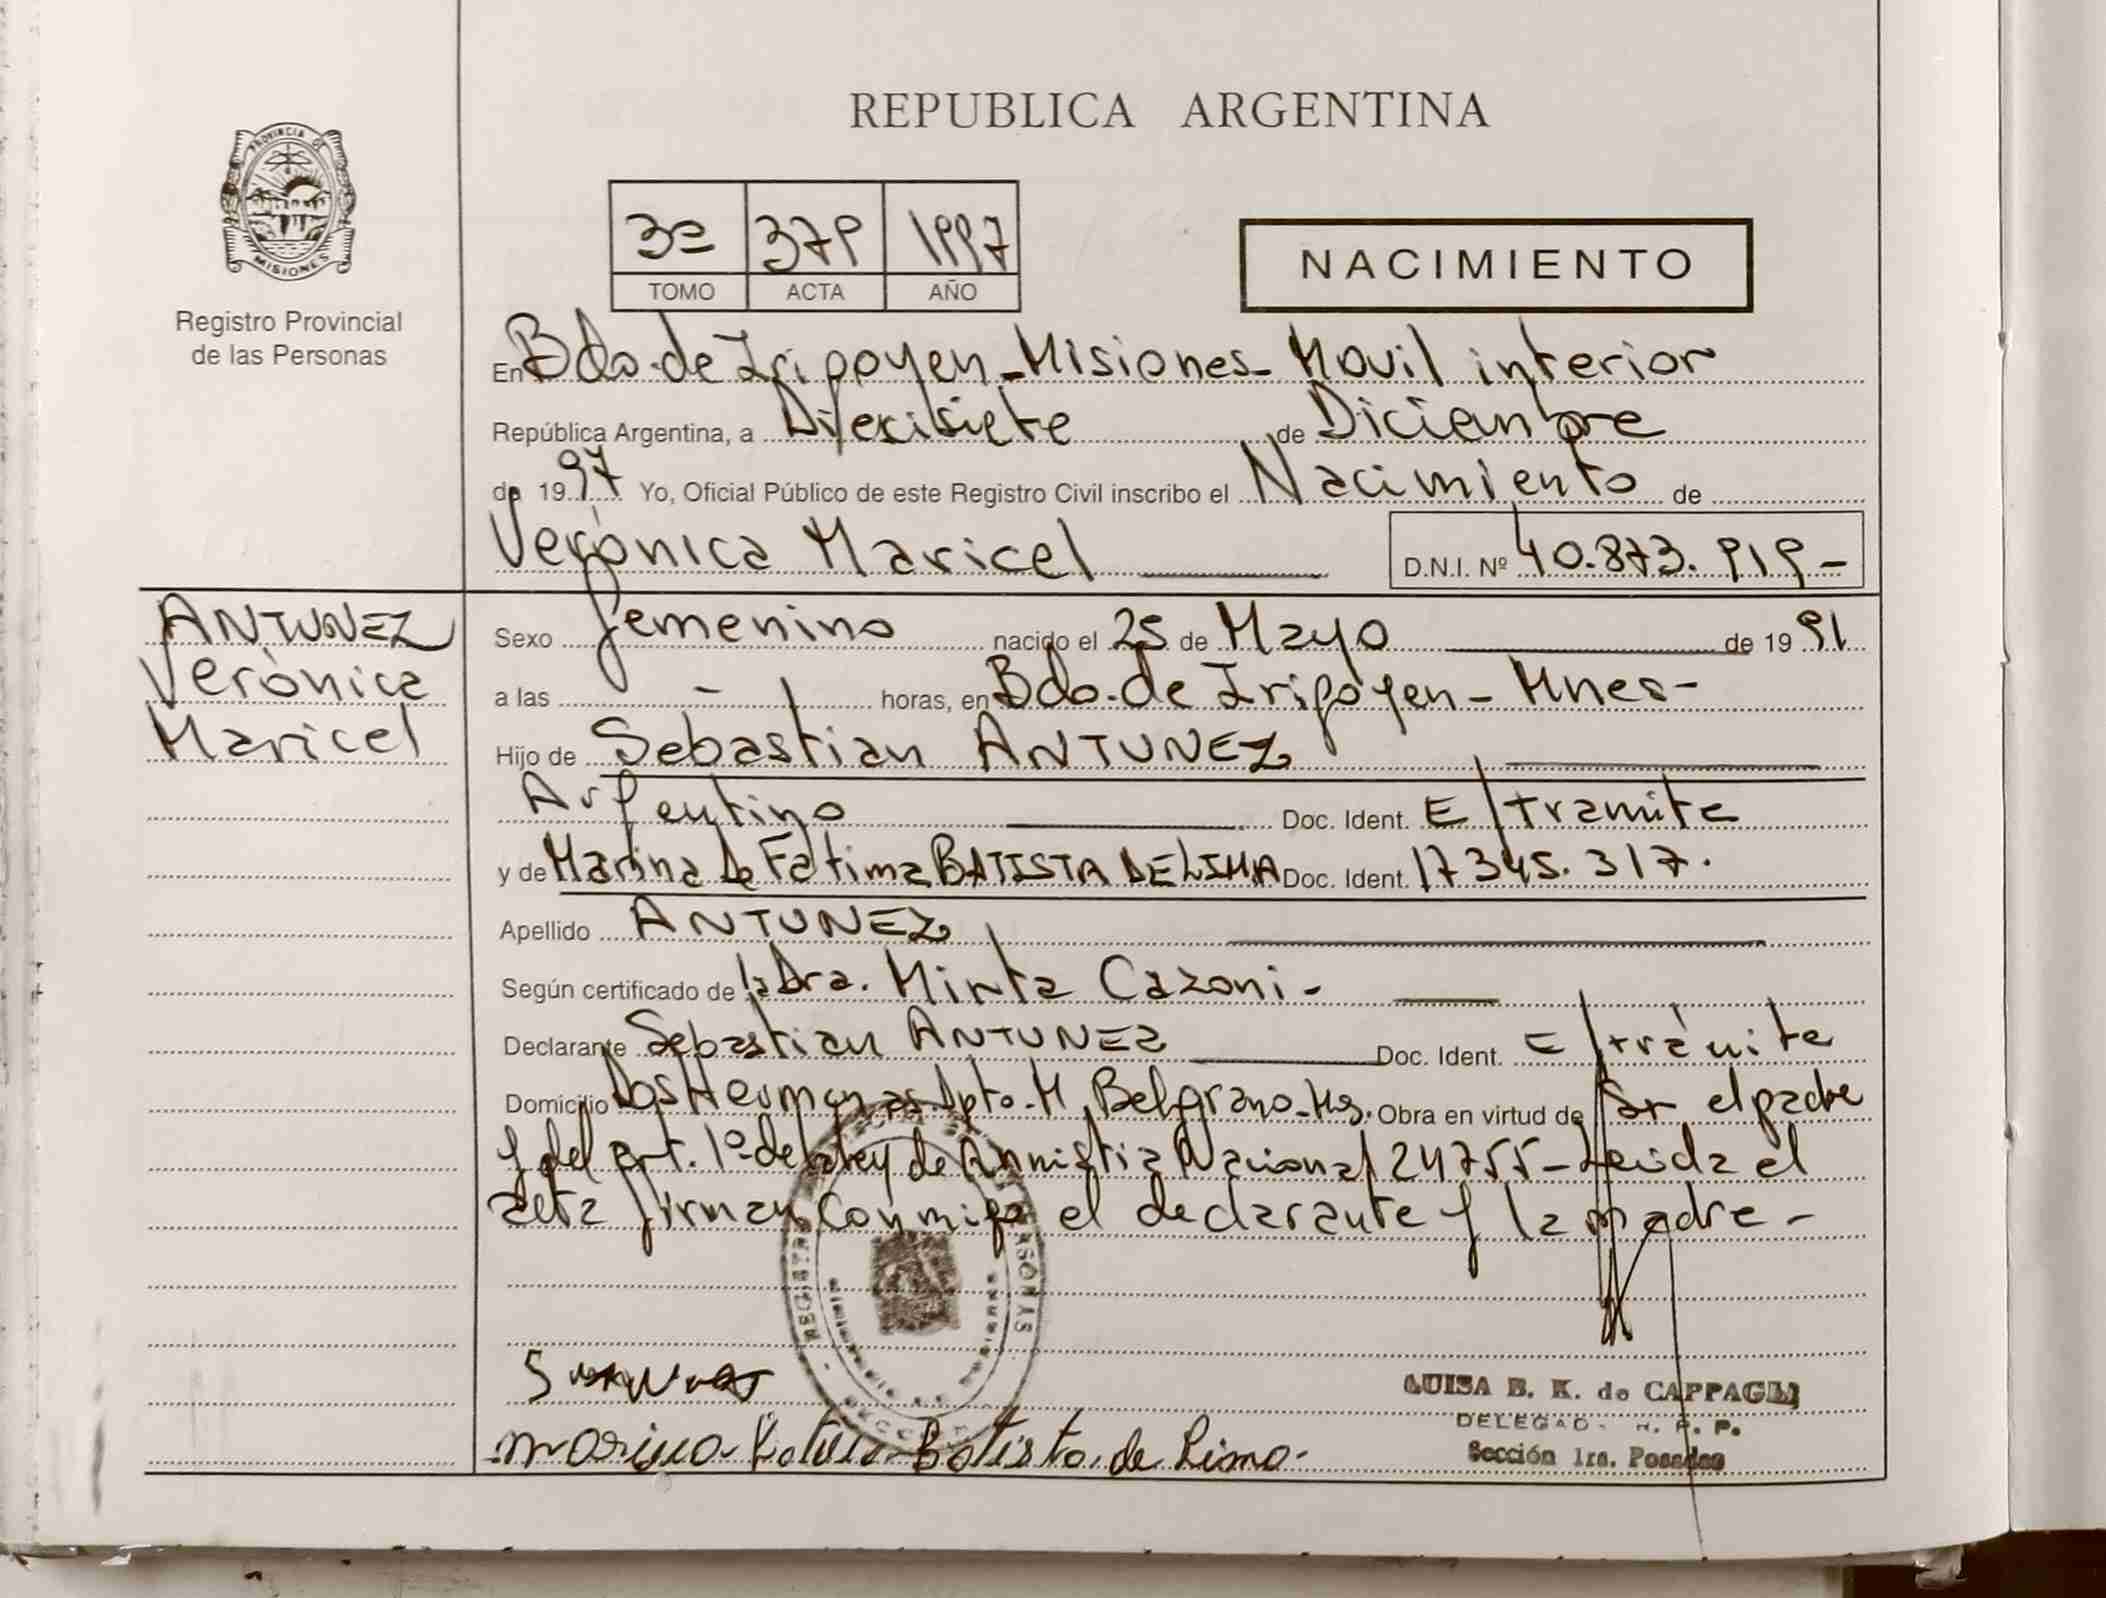 REPUBLICA ARGENTINA
PROVINCIA DE
MISIONES
Registro Provincial
de las Personas
3º 379 1997
TOMO ACTA AÑO
NACIMIENTO
En Bdo. de Irigoyen - Misiones - Movil interior
República Argentina, a Diecisiete de Diciembre
de 1997 Yo, Oficial Público de este Registro Civil inscribo el Nacimiento de
Verónica Maricel D.N.I. Nº 40.873.919-
ANTUNEZ
Verónica
Maricel
Sexo femenino nacido el 25 de Mayo de 1991
a las - horas, en Bdo. de Irigoyen - Mnes-
Hijo de Sebastian ANTUNEZ
Argentino Doc. Ident. E/tramite
y de Marina de Fatima BATISTA DE LIMA Doc. Ident. 17345.317.
Apellido ANTUNEZ
Según certificado de la Dra. Mirta Cazoni -
Declarante Sebastian ANTUNEZ Doc. Ident. E/trámite
Domicilio Dos Hermanas Dpto. M. Belgrano - Ms. Obra en virtud de Ser el padre
y del art. 1º de la ley de Amnistia Nacional 24755 - Leida el
acta firman conmigo el declarante y la madre -
REGISTRO PERSONAS
Marina Fatima Batista de Lima.
LUISA B. K. de CAPPAGLI
DELEGADO R. P. P.
Sección 1ra. Posadas